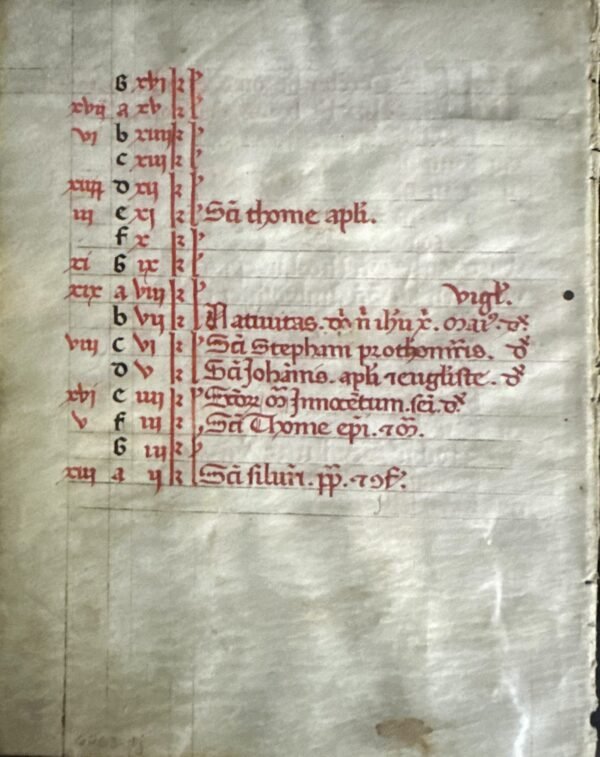 G xvi kl
xvii a xv kl
vi b xiiii kl
c xiii kl
xiiii d xii kl
iii e xi kl Sci thome apli.
f x kl
xi G ix kl
xix a viii kl vigl'.
b vii kl Natiuitas. dni nri ihu x. Mai9. dx
viii c vi kl Sci Stephani prothomris. dx
d v kl Sci Johannis. apli 7 euugliste. dx
xvi e iiii kl Scor Innocetum. dx
v f iii kl Sci Thome epi. 7 m.
G iii kl
xiii a ii kl Sci siluri. pp. 7 9f.